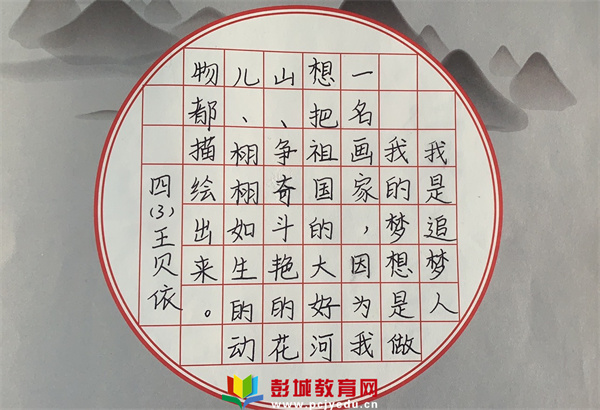 我是追梦人
我的梦想是做
一名画家，因为我
想把祖国的大好河
山、争奇斗艳的花
儿、栩栩如生的动
物都描绘出来。
四(3)王贝依
彭城教育网
www.pcjyedu.cn